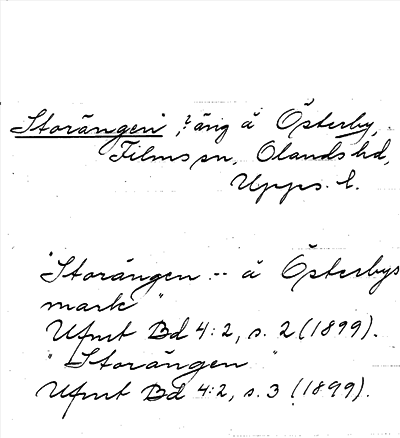 Storängen, ? äng å Österby,
Films sn, Olands hd,
Upps. l.
"Storängen -- å Österbys
mark"
Ufmt Bd 4:2, s. 2 (1899).
"Storängen"
Ufmt Bd 4:2, s. 3 (1899).